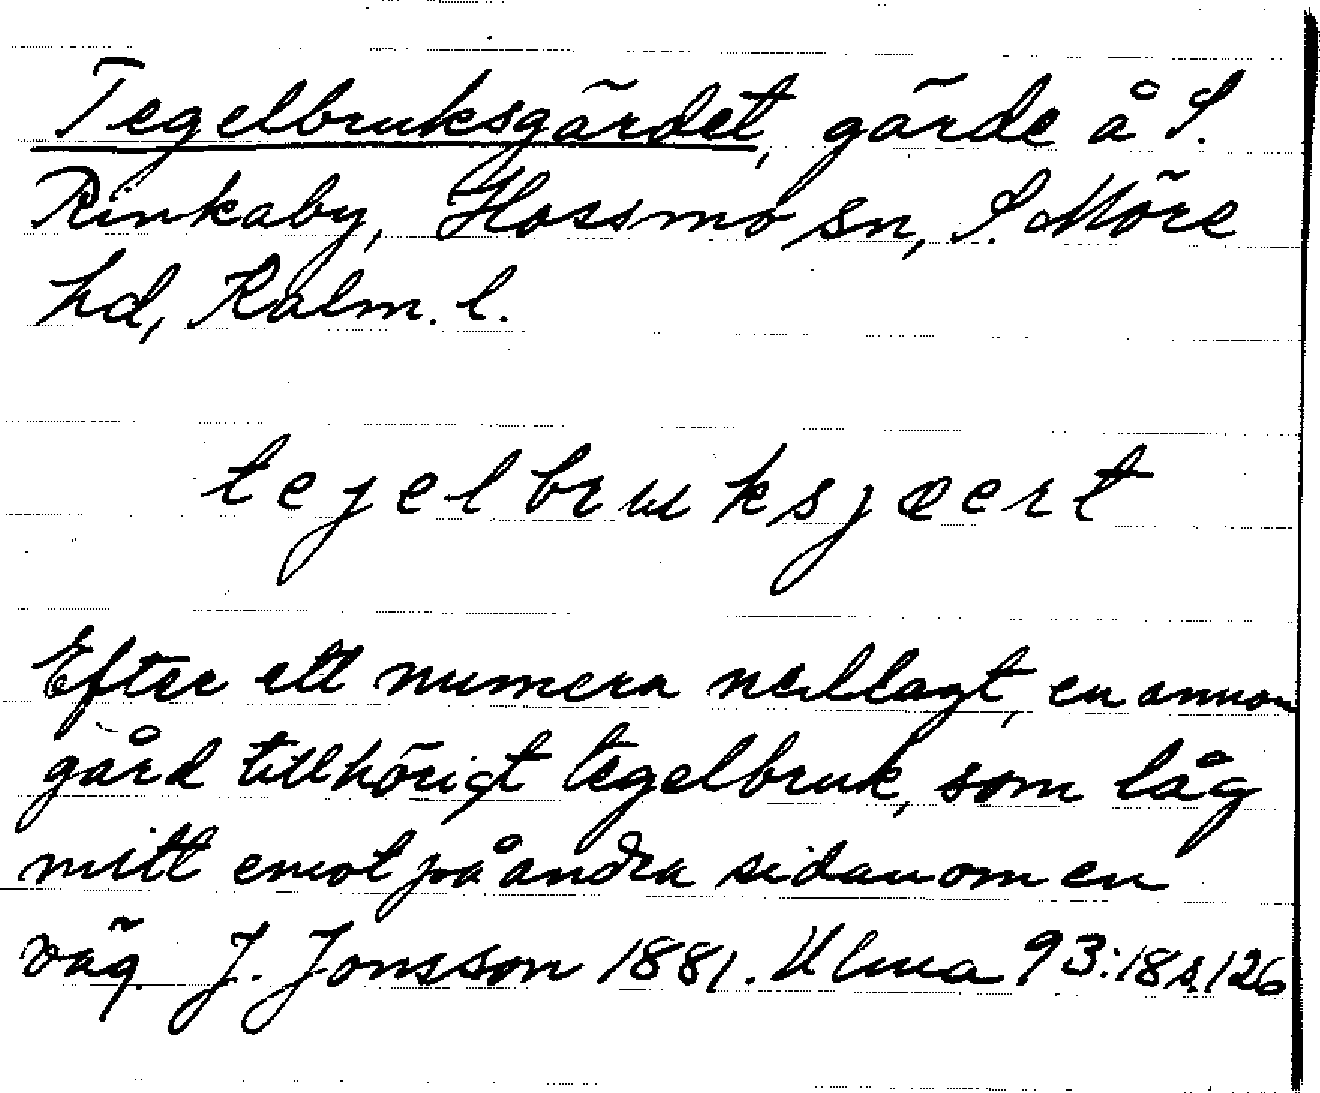 Tegelbruksgärdet, gärde å S.
Rinkaby, Hossmo sn, S. Möre
hd, Kalm. l.
tejelbruksjæert
Efter ett numera nedlagt, en annan
gård tillhörigt tegelbruk, som låg
mitt emot på andra sidan om en
väg. J. Jonsson 1881. Ulma 93:18 s.126